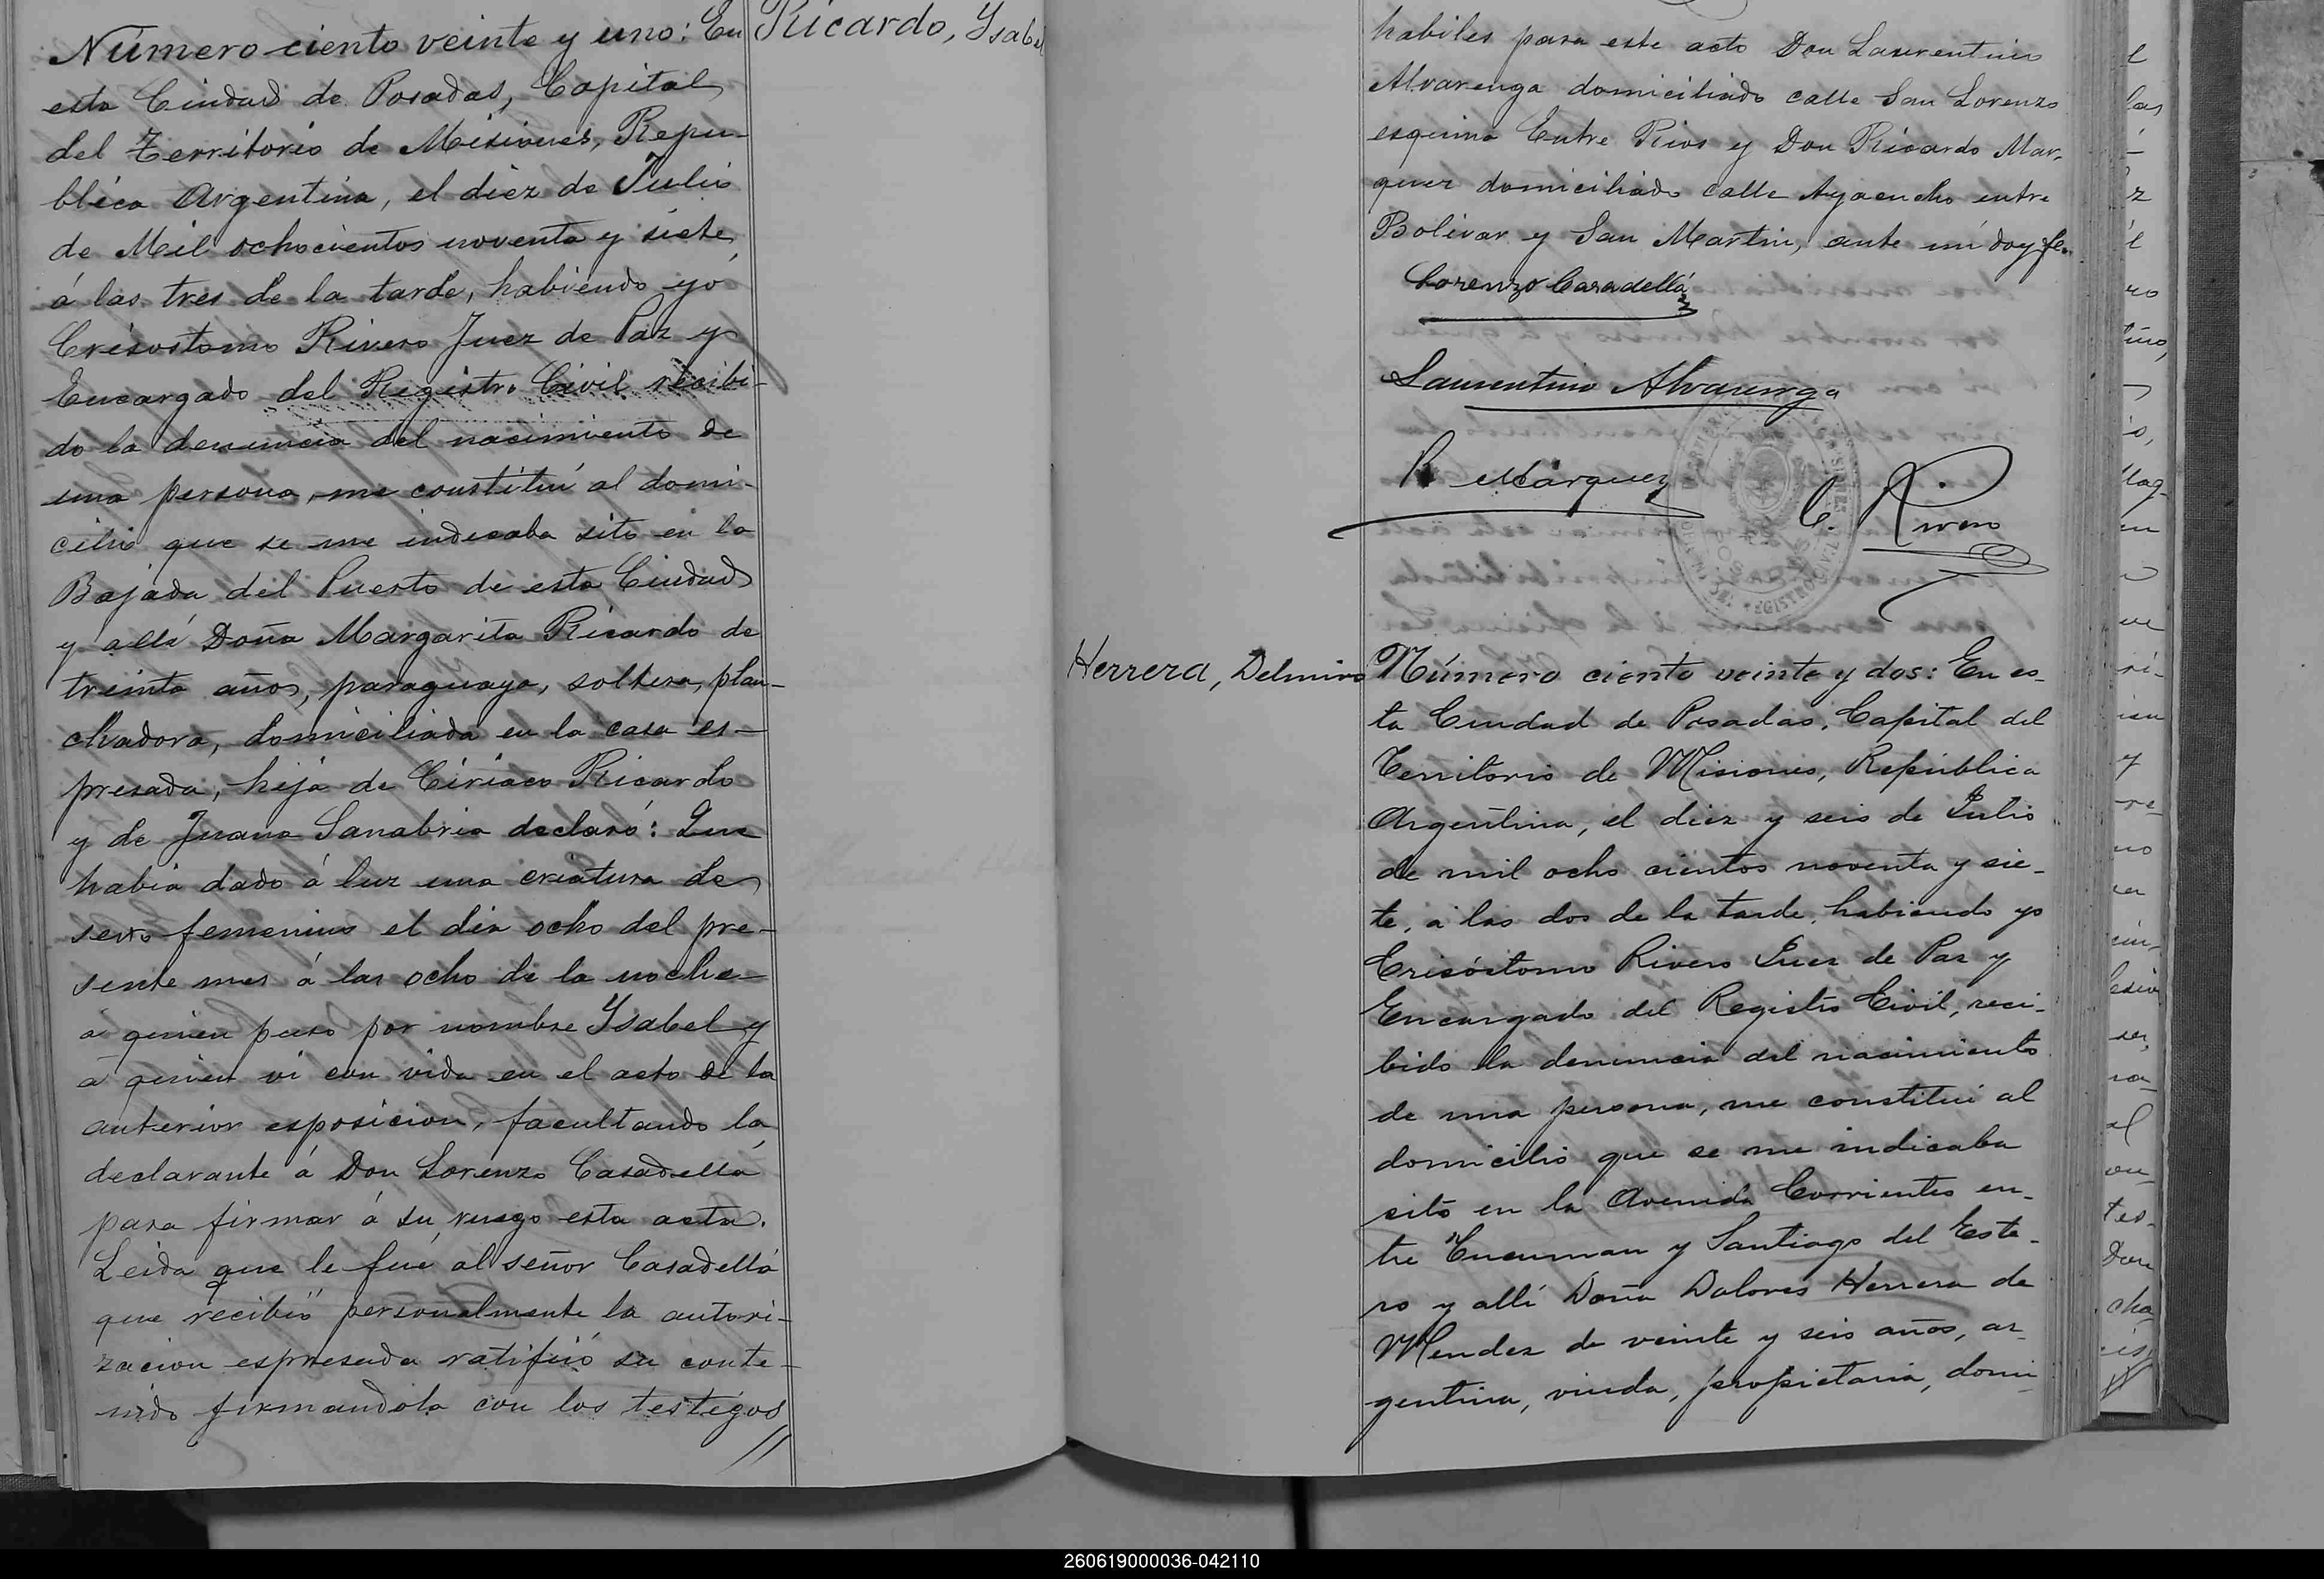 Número ciento veinte y uno: En
esta Ciudad de Posadas, Capital
del Territorio de Misiones, Repu-
blica Argentina, el diez de Julio
de Mil ochocientos noventa y siete,
á las tres de la tarde, habiendo yo
Crisostomo Rivero Juez de Paz y
Encargado del Registro Civil recibi-
do la denuncia del nacimiento de
una persona, me constituí al domi-
cilio que se me indicaba sito en la
Bajada del Puerto de esta Ciudad
y allí Doña Margarita Ricardo de
treinta años, paraguaya, soltera, plan-
chadora, domiciliada en la casa es-
presada, hija de Ciriaco Ricardo
y de Juana Sanabria declaró: Que
habia dado á luz una criatura de
sexo femenino el dia ocho del pre-
sente mes á las ocho de la noche
á quien puso por nombre Ysabel y
á quien vi con vida en el acto de la
anterior esposicion, facultando la
declarante á Don Lorenzo Casadellá
para firmar á su ruego esta acta.
Leida que le fué al señor Casadellá
que recibió personalmente la autori-
zacion espresada ratificó su conte-
nido firmandola con los testigos
//
Ricardo, Ysabel
habiles para este acto Don Laurentino
Alvarenga domiciliado calle San Lorenzo
esquina Entre Rios y Don Ricardo Mar-
quez domiciliado calle Ayacucho entre
Bolivar y San Martin, ante mí doy fe.
Lorenzo Casadellá
Laurentino Alvarenga
R Márquez
C. Rivero
Herrera, Delmiro
Número ciento veinte y dos: En es-
ta Ciudad de Posadas, Capital del
Territorio de Misiones, República
Argentina, el diez y seis de Julio
de mil ocho cientos noventa y sie-
te, a las dos de la tarde, habiendo yo
Crisóstomo Rivero Juez de Paz y
Encargado del Registro Civil, reci-
bido la denuncia del nacimiento
de una persona, me constitui al
domicilio que se me indicaba
sito en la Avenida Corrientes en-
tre Tucuman y Santiago del Este-
ro y allí Doña Dolores Herrera de
Mendez de veinte y seis años, ar-
gentina, viuda, propietaria, domi-
260619000036-042110